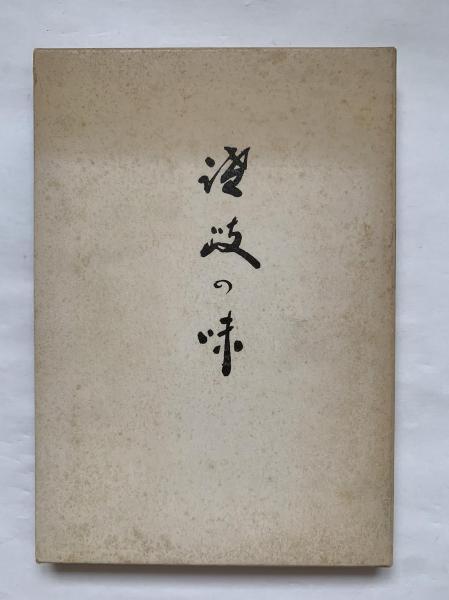 讃岐の味